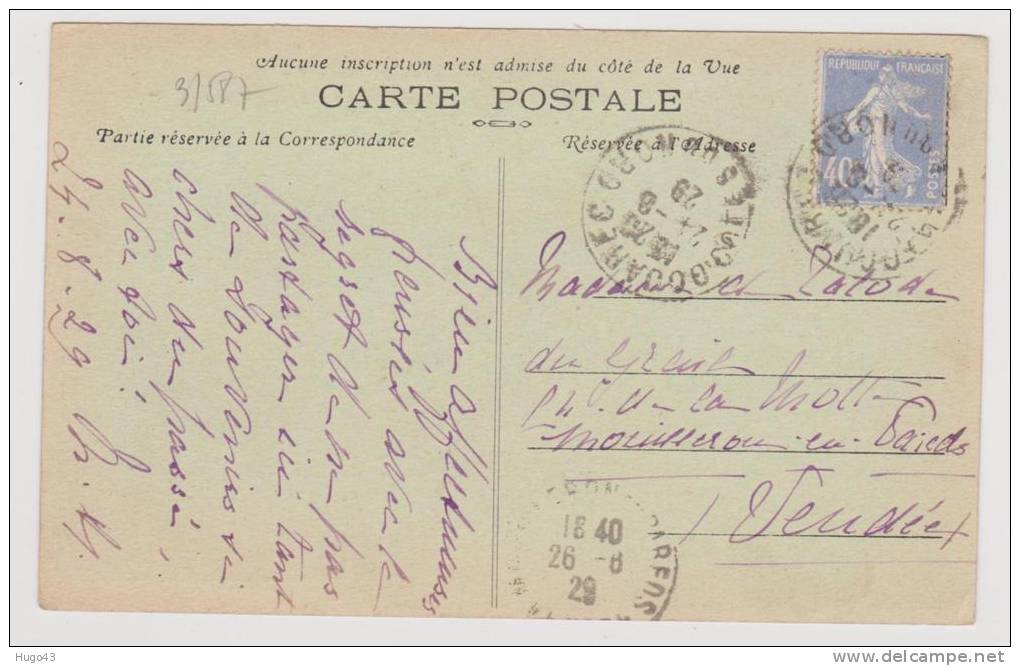 Aucune inscription n'est admise du côté de la Vue
3/587
CARTE POSTALE
Partie réservée à la Correspondance
Réservée à l'Adresse
REPUBLIQUE FRANÇAISE
40c
POSTES
24-8
29
Bien affectueuses
pensées avec le
regret de ne pas
partager ici tant
de souvenirs si
chers du passé
avec toi!
24.8.29
Madame de
du
Ch. de la Motte
Mouilleron-en-Pareds
(Vendée)
18 40
26 -8
29
Hugo43
www.delcampe.net